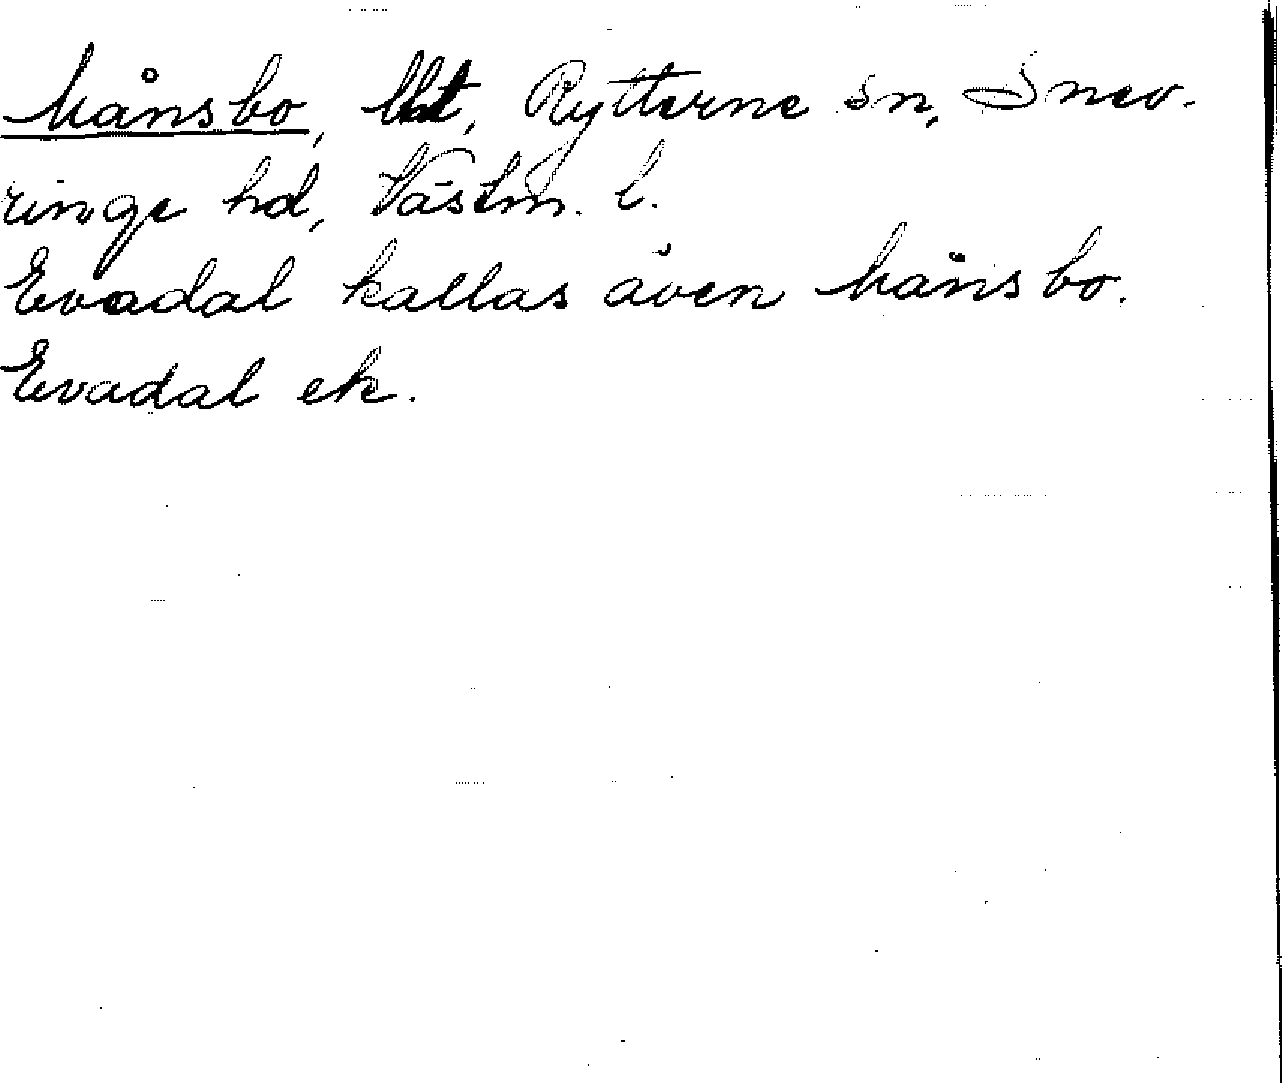 Månsbo, lht, Rytterne sn, Snev-
ringe hd, Västm. l.
Evadal kallas även Månsbo.
Evadal ek.